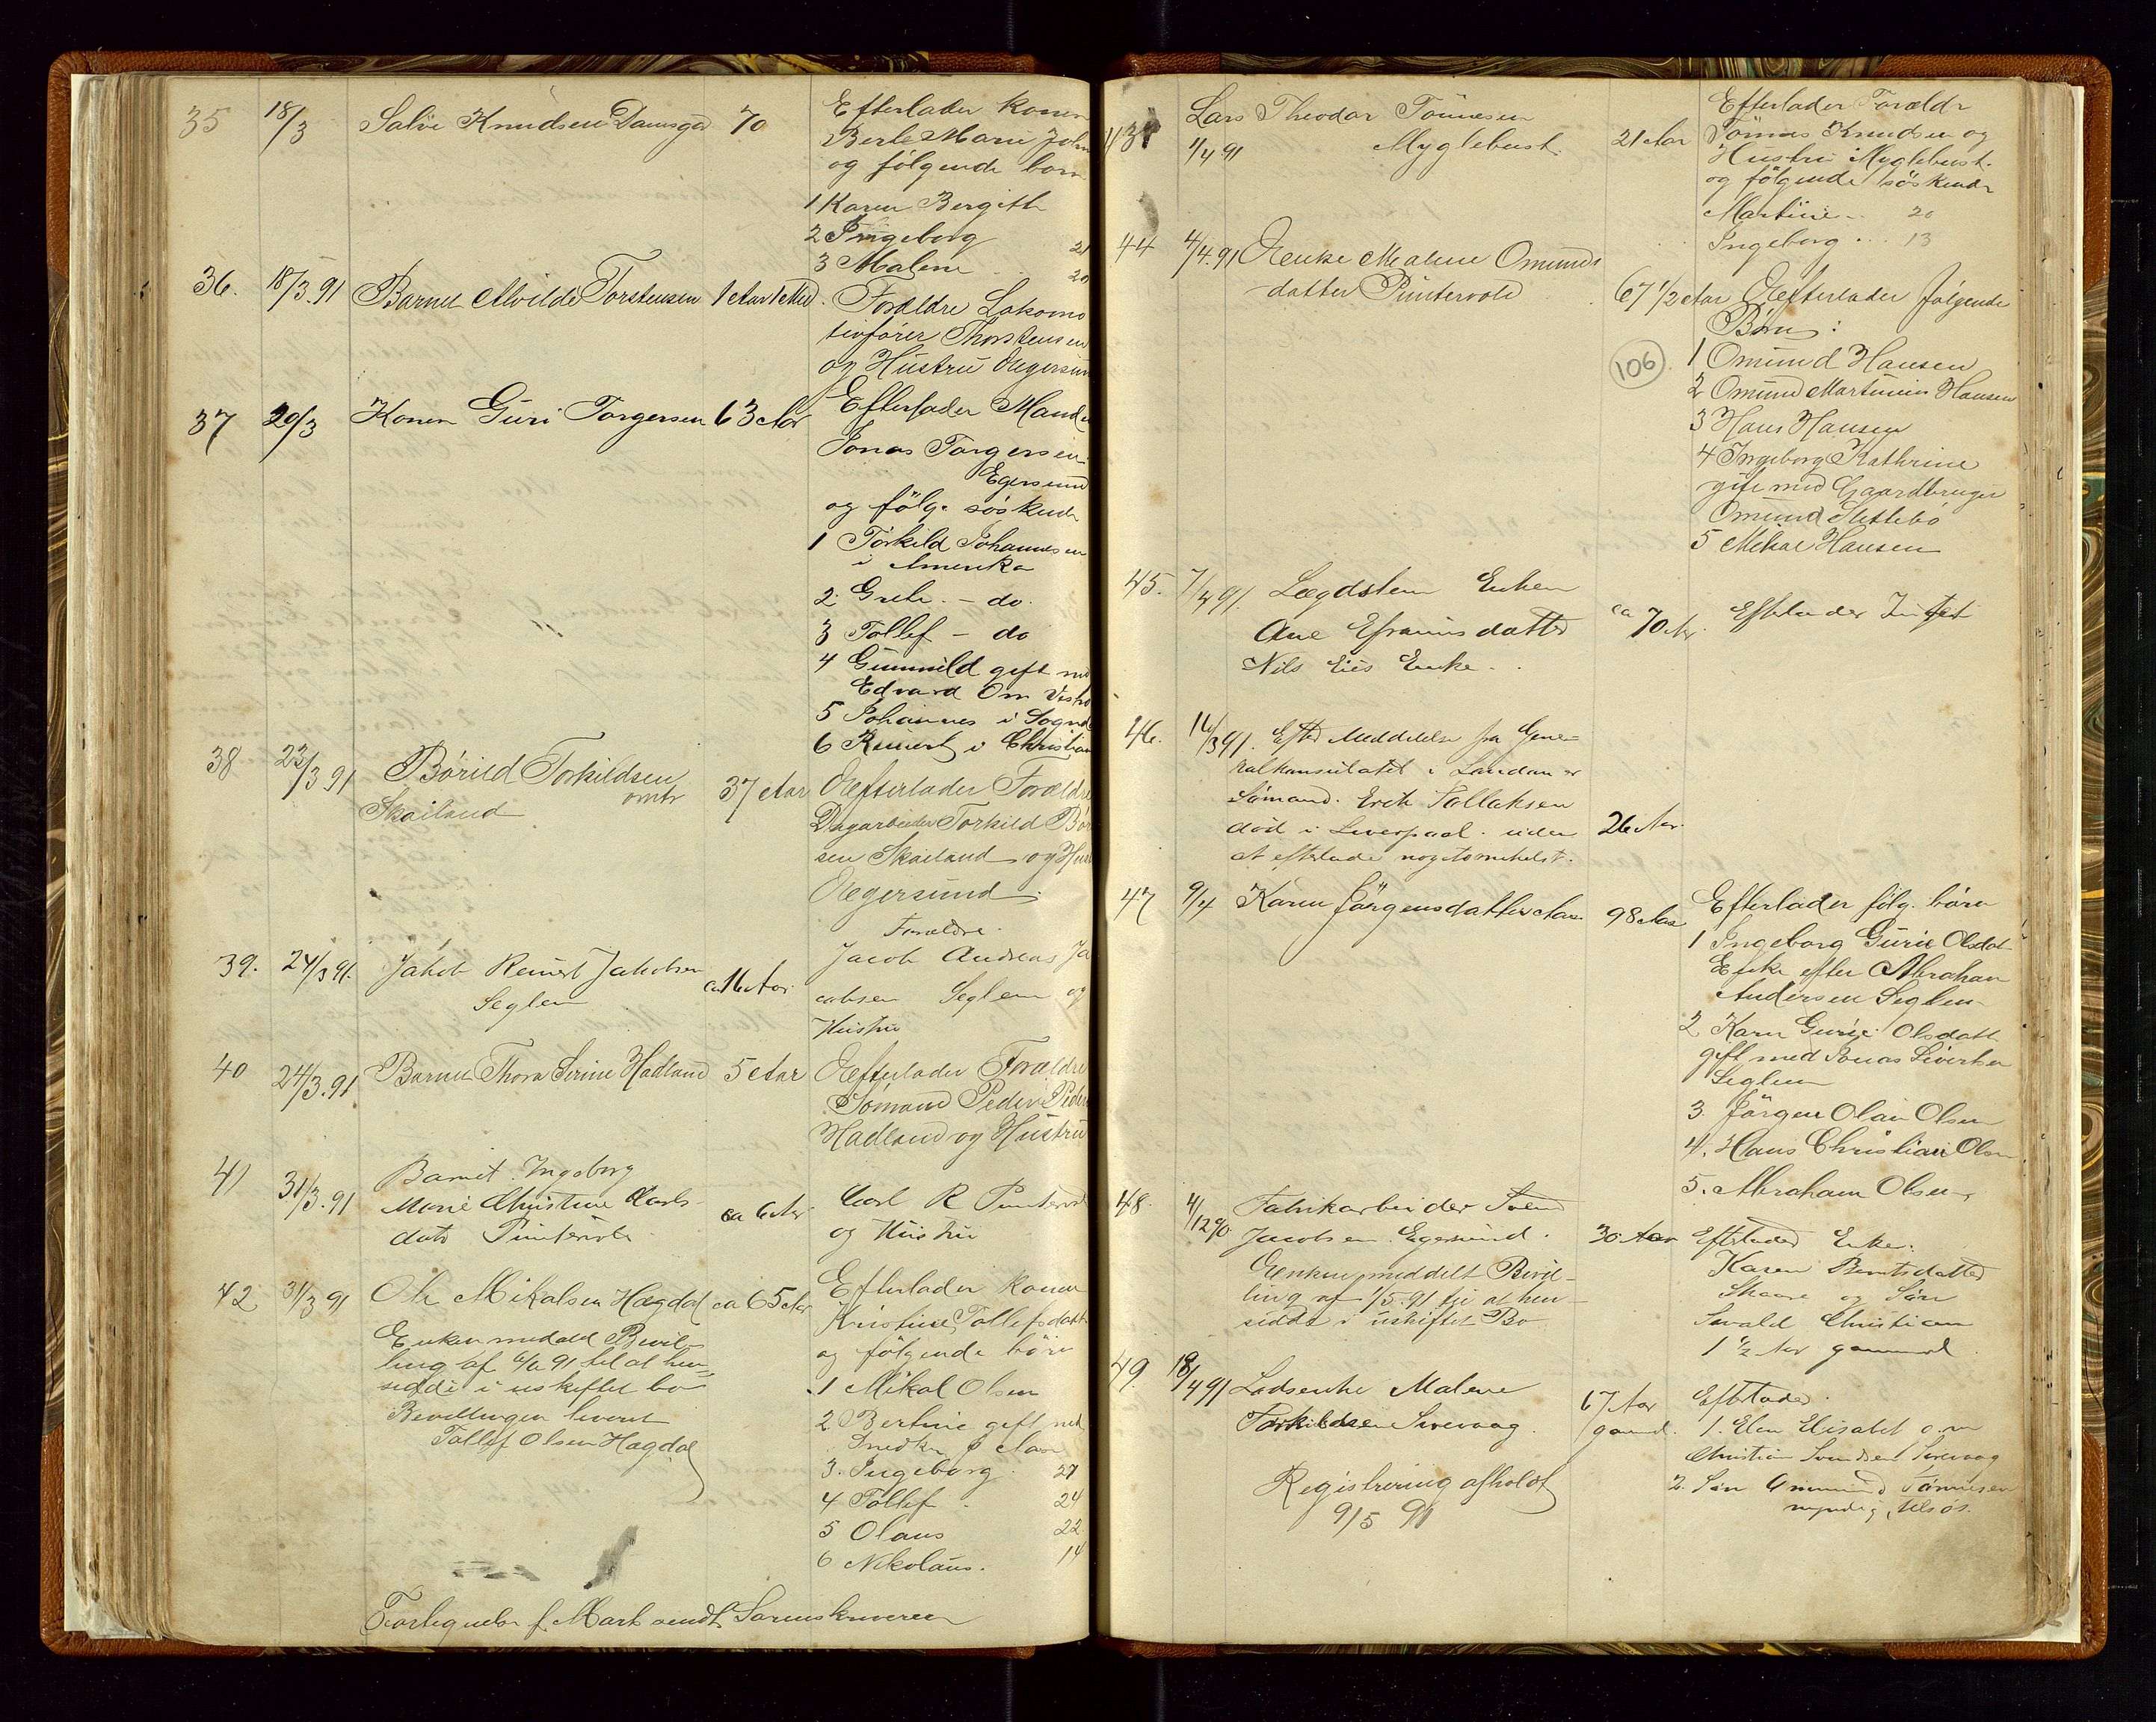 35 18/3 Salve Knudsen Damsgd 70 Efterlader Konen
Berte Marie John
og følgende børn
1 Karen Bergith
2 Ingeborg 21
3 Malene 20
36. 18/3.91 Barnet Alvilde Torstensen 1 Aar 1 Md. Forældre Lokomo
tivfører Thorstensen
og Hustru Aegersund
37 20/3 Konen Guri Torgersen 63 Aar Efterlader Mand
Jonas Torgersen
Egersund
og følg. söskende
1 Torkild Johannesen
i Amerika
2. Grete. - do.
3 Tollef - do
4 Gunnild gift med
Edvard Om
5 Johannes i Sogndal
6 Reinert i Christian
38 23/3 91 Börild Torkildsen 37 Aar Aefterlader Forældre
omtr
Skailand Dagarbeider Torkild Bör
sen Skailand og Hus
Aegersund.
Forældre.
39. 24/3 91. Jakob Reinert Jakobsen ca 16 Aar. Jacob Andreas Ja
Seglem cobsen Seglem og
Hustru
40 24/3.91 Barnet Thora Serine Hadland 5 Aar Aefterlader Forældre
Sömand Peder Peder
Hadland og Hustru
41 31/3.91 Barnet Ingeborg
Marie Christine Carls- ca 6 Aar Carl R Puntervold
datr Puntervold og Hustru
42 31/3 91 Ole Mikalsen Hægdal ca 65 Aar Efterlader Konen
Kristine Tollefsdatt
Enken meddelt Bevil- og følgende børn
ling af 91 til at hen-
sidde i uskiftet bo 1 Mikal Olsen
Bevillingen leveret 2 Bertine gift med
Tollef Olsen Hægdal
3. Ingeborg. 27
4 Tollef. 24
5 Olaus 22
6 Nikolaus. 14
Fortegnelse f. Marts sendt Sorenskriveren
43 1/4 91 Lars Theodor Tönnesen
Myglebust. 21 Aar Efterlader Forældr
Tönnes Knudsen og
Hustru Myglebust.
og følgende söskende
Martine - 20
Ingeborg ... 13
44 4/4.91 Aenke Malene Omunds
datter Puntervold 67 1/2 Aar Aefterlader følgende
Børn:
106
1 Omund Hansen
2 Omund Martinius Hansen
3 Hans Hansen
4 Ingeborg Kathrine
gift med Gaardbruger
Omund Slettebö
5 Mikal Hansen
45. 7/4 91. Lægdslem Enken
Ane Efraimsdatter ca 70 Aar. Efterlader Intet
Nils Eies Enke.
46. 16/3 91. Efter Meddelelse fra Gene-
ralkonsulatet i London er
Sömand Erik Tollaksen
död i Liverpool. uden 26 Aar.
at efterlade nogetsomhelst.
47 9/4 Karen Jörgensdatter Aase 98 Aar Efterlader følg. børn
1 Ingeborg Gurie Olsdat
Enke efter Abraham
Andersen Seglem
2 Karn Gurie Olsdatt
gift med Jonas Sivertsen
Seglem
3. Jörgen Olai Olsen
4. Hans Christian Olsen
5. Abraham Olsen,
48. 4/12 90. Fabrikarbeider Svend
Jacobsen Egersund. 30 Aar Efterlader Enke.
Aenken meddelt Bevil- Karen Berntsdatter
ling af 1/5.91 til at hen- Skaare og Søn
sidde i uskiftet Bo Sevald Christian
1 1/2 Aar gammel.
49. 18/4 91 Lodsenke Malene 67 Aar Efterlader.
Torkildsen Sirevaag. gaml. 1. Elen Elisabet g.m
Christian Svendsen Sirevaag
2. Søn Ommund Tönnesen
myndig,
Registrering afholdt
9/5 91